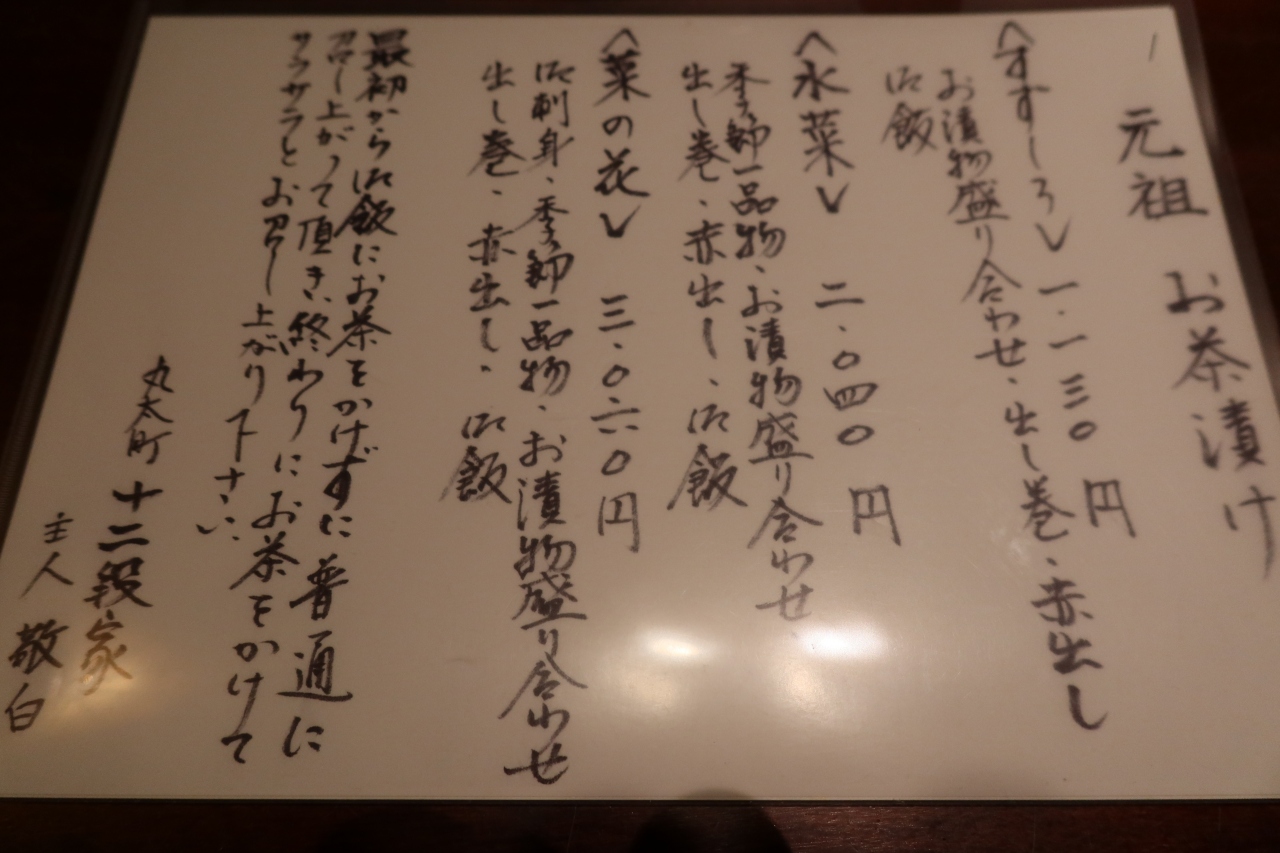 元祖 お茶漬け
<すずしろ> 一.一三〇円
お漬物盛り合わせ・出し巻・赤出し
御飯
<水菜> 二.〇四〇円
季節一品物、お漬物盛り合わせ
出し巻、赤出し、御飯
<菜の花> 三.〇六〇円
御刺身、季節一品物、お漬物盛り合わせ
出し巻、赤出し、御飯
最初から御飯にお茶をかけずに普通に
召し上がって頂き、終わりにお茶をかけて
サラサラとお召し上がり下さい
丸太町 十二段家
主人 敬白